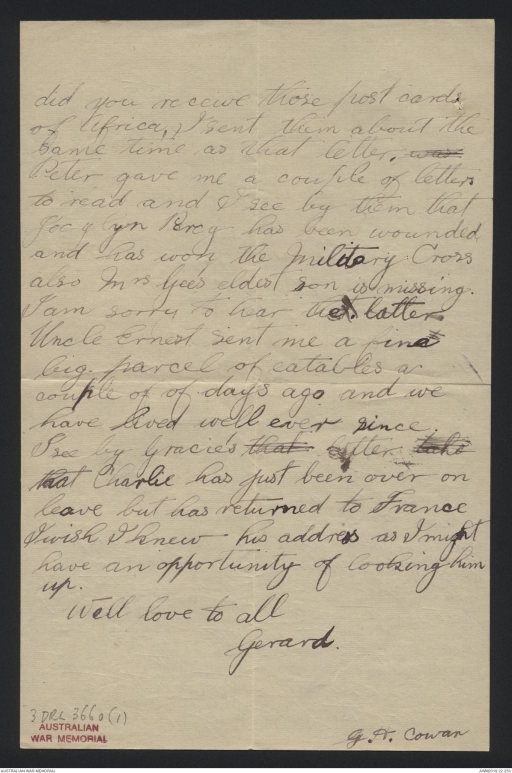 did you receive those post cards
of Africa, I sent them about the
same time as that letter. was
Peter gave me a couple of letters
to read and I see by them that
Percy has been wounded
and has won the Military Cross
also Mrs Gee's eldest son is missing.
I am sorry to hear the latter
Uncle Ernest sent me a fine
big parcel of eatables a
couple of of days ago and we
have lived well ever since.
I see by Gracie's that letter
that Charlie has just been over on
leave but has returned to France
I wish I knew his address as I might
have an opportunity of looking him
up.
Well love to all
Gerard.
3 DRL 3660(1)
AUSTRALIAN
WAR MEMORIAL
G. A. Cowan
AUSTRALIAN WAR MEMORIAL